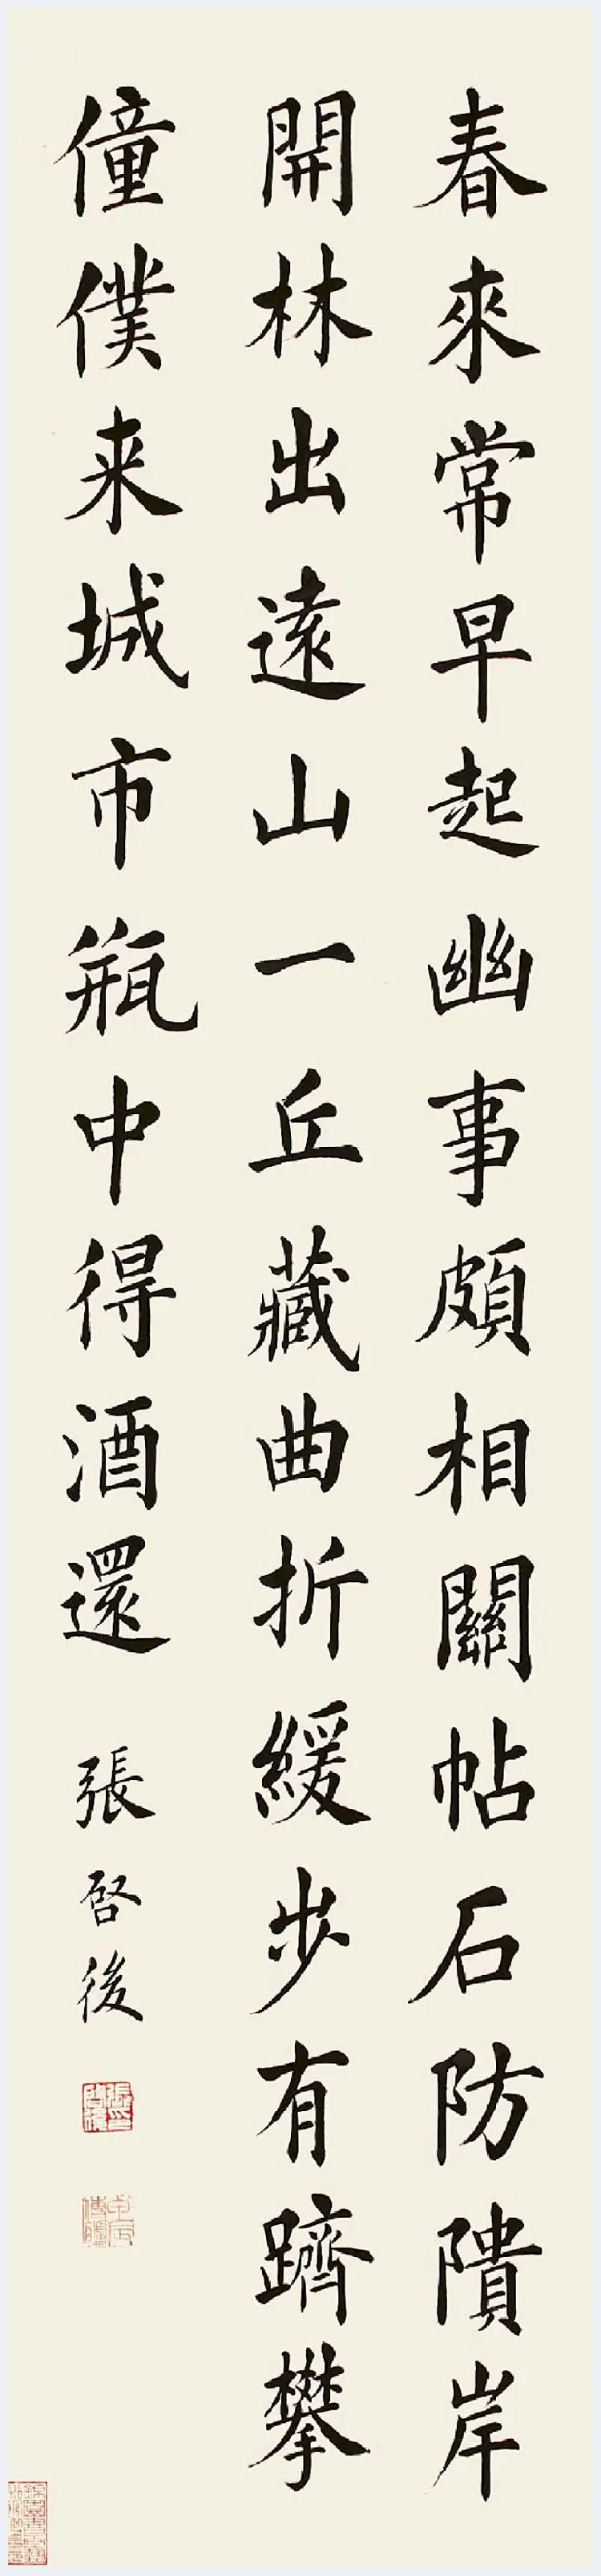 春來常早起幽事頗相關帖石防隤岸
開林出遠山一丘藏曲折緩步有躋攀
僮僕来城市瓶中得酒還
張啓後